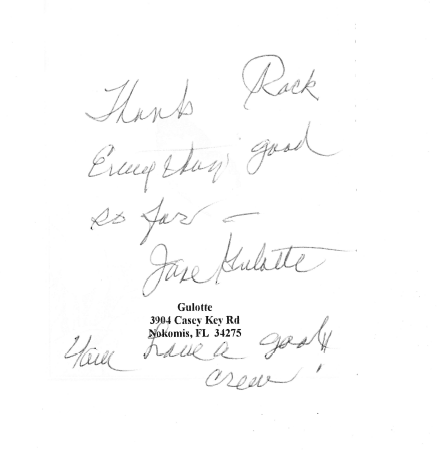 Thanks Rock
Everything good
so far –
Jane Gulotte
Gulotte
3904 Casey Key Rd
Nokomis, FL 34275
You have a good
crew!